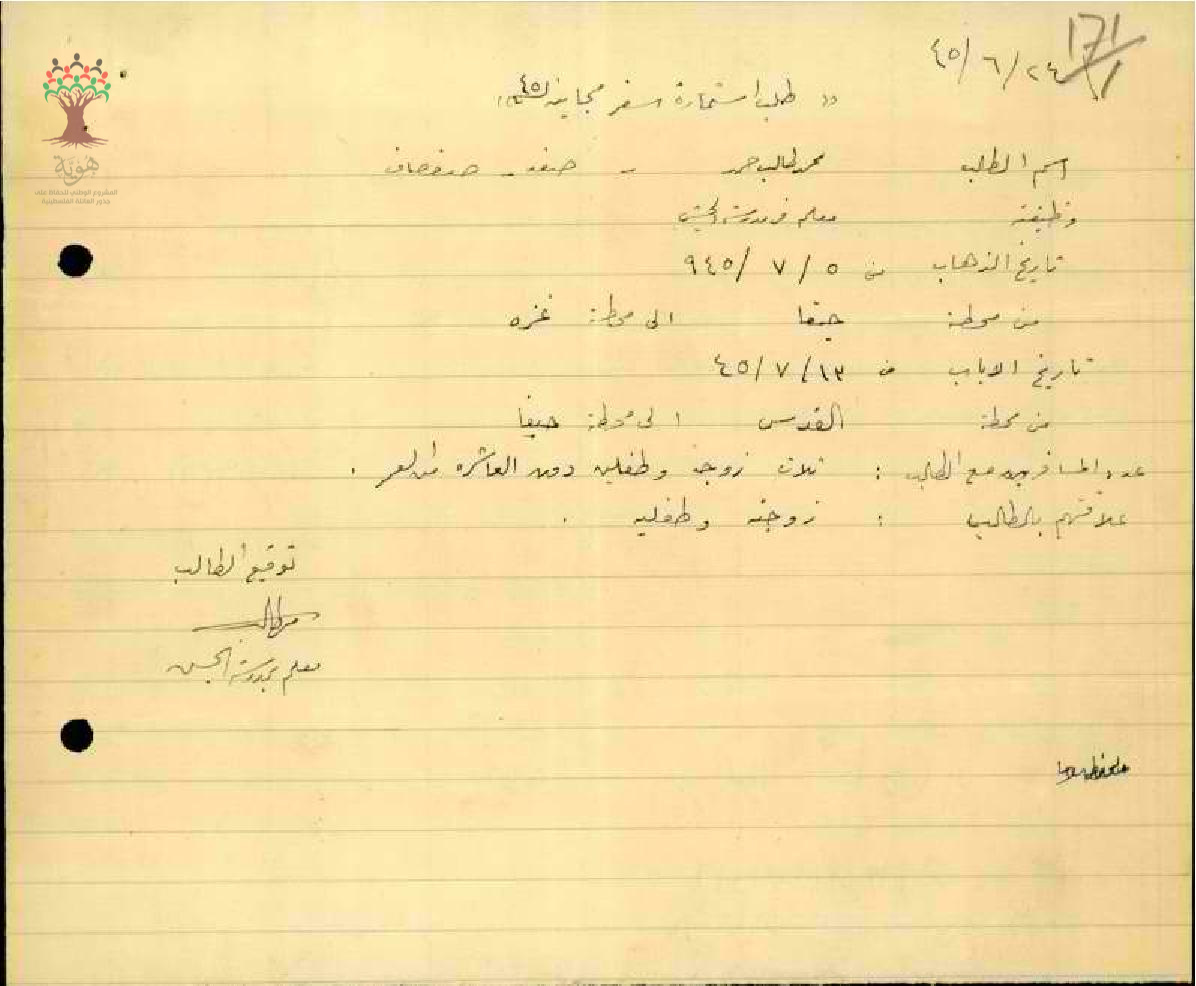 171/1
٤٥/٦/٢٤
« طلب استمارة سفر مجانية لسنة ٤٥ »
هوية
المشروع الوطني للحفاظ على
جذور العائلة الفلسطينية
اسم الطالب محمد طالب حمد - صفد - صفصاف
وظيفته معلم في مدرسة
تاريخ الذهاب في ٥ / ٧ / ٩٤٥
من محطة حيفا الى محطة غزه
تاريخ الاياب في ١٣/ ٧ / ٤٥
من محطة القدس الى محطة حيفا
عدد المسافرين مع الطالب : ثلاث زوجة وطفلين دون العاشره من العمر .
علاقتهم بالطالب : زوجته وطفليه .
توقيع الطالب
معلم بمدرسة